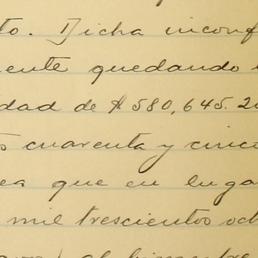 to. Dicha inconf
ente quedando
dad de $580,645.20
s cuarenta y cinco
ea que en luga
mil trescientos och
al bimestre